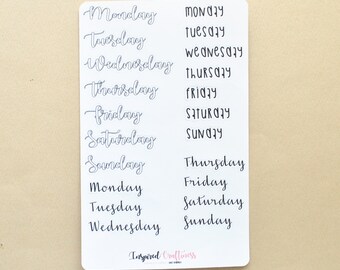 Monday
Tuesday
Wednesday
Thursday
Friday
Saturday
Sunday
Monday
Tuesday
Wednesday
MONDAY
TUESDAY
WEDNESDAY
THURSDAY
FRIDAY
SATURDAY
SUNDAY
Thursday
Friday
Saturday
Sunday
Inspired Craftiness